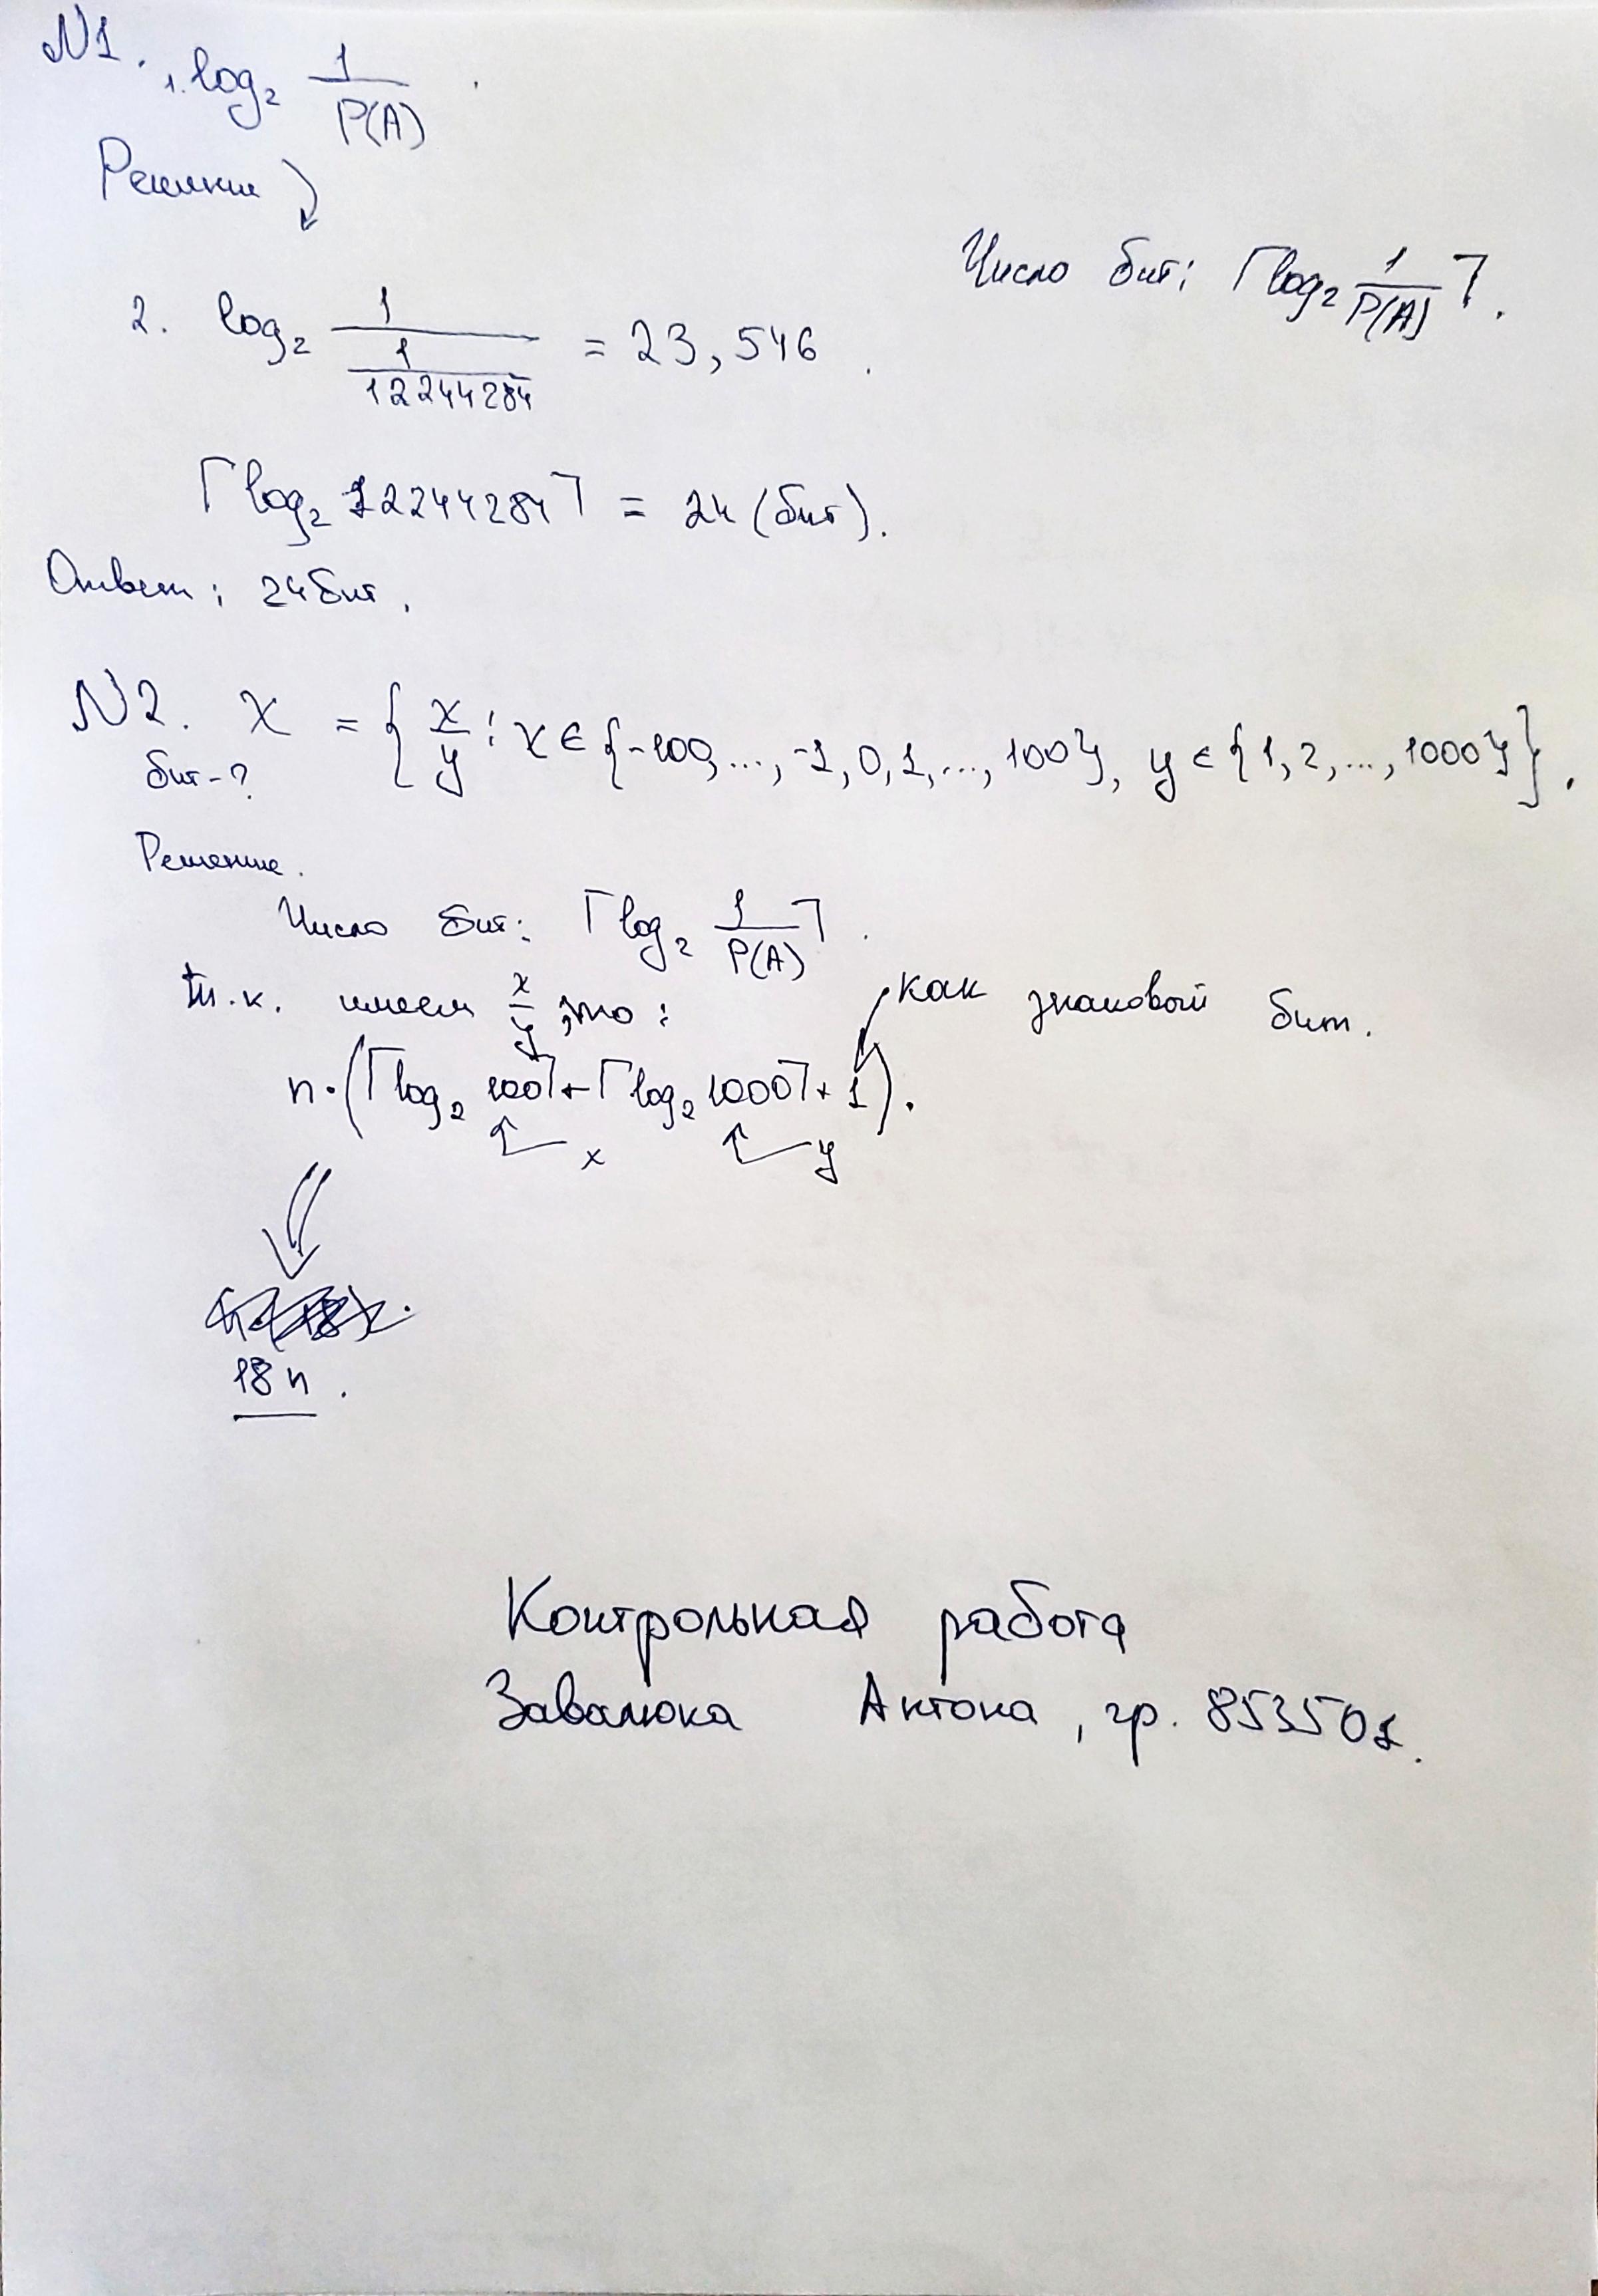 N1. 1. log₂ 1/P(A).
Решение
Число бит: ⌈log₂ 1/P(A)⌉.
2. log₂ 1/(1/12244284) = 23,546.
⌈log₂ 12244284⌉ = 24 (бит).
Ответ: 24 бит.
N2. X = { x/y : x ∈ {-100, ..., -1, 0, 1, ..., 100}, y ∈ {1, 2, ..., 1000} }.
бит-?
Решение.
Число бит: ⌈log₂ 1/P(A)⌉.
т.к. имеем x/y, то:
как знаковый бит.
n·(⌈log₂ 100⌉ + ⌈log₂ 1000⌉ + 1).
x y
18n.
Контрольная работа
Завалюка Антона, гр. 853501.